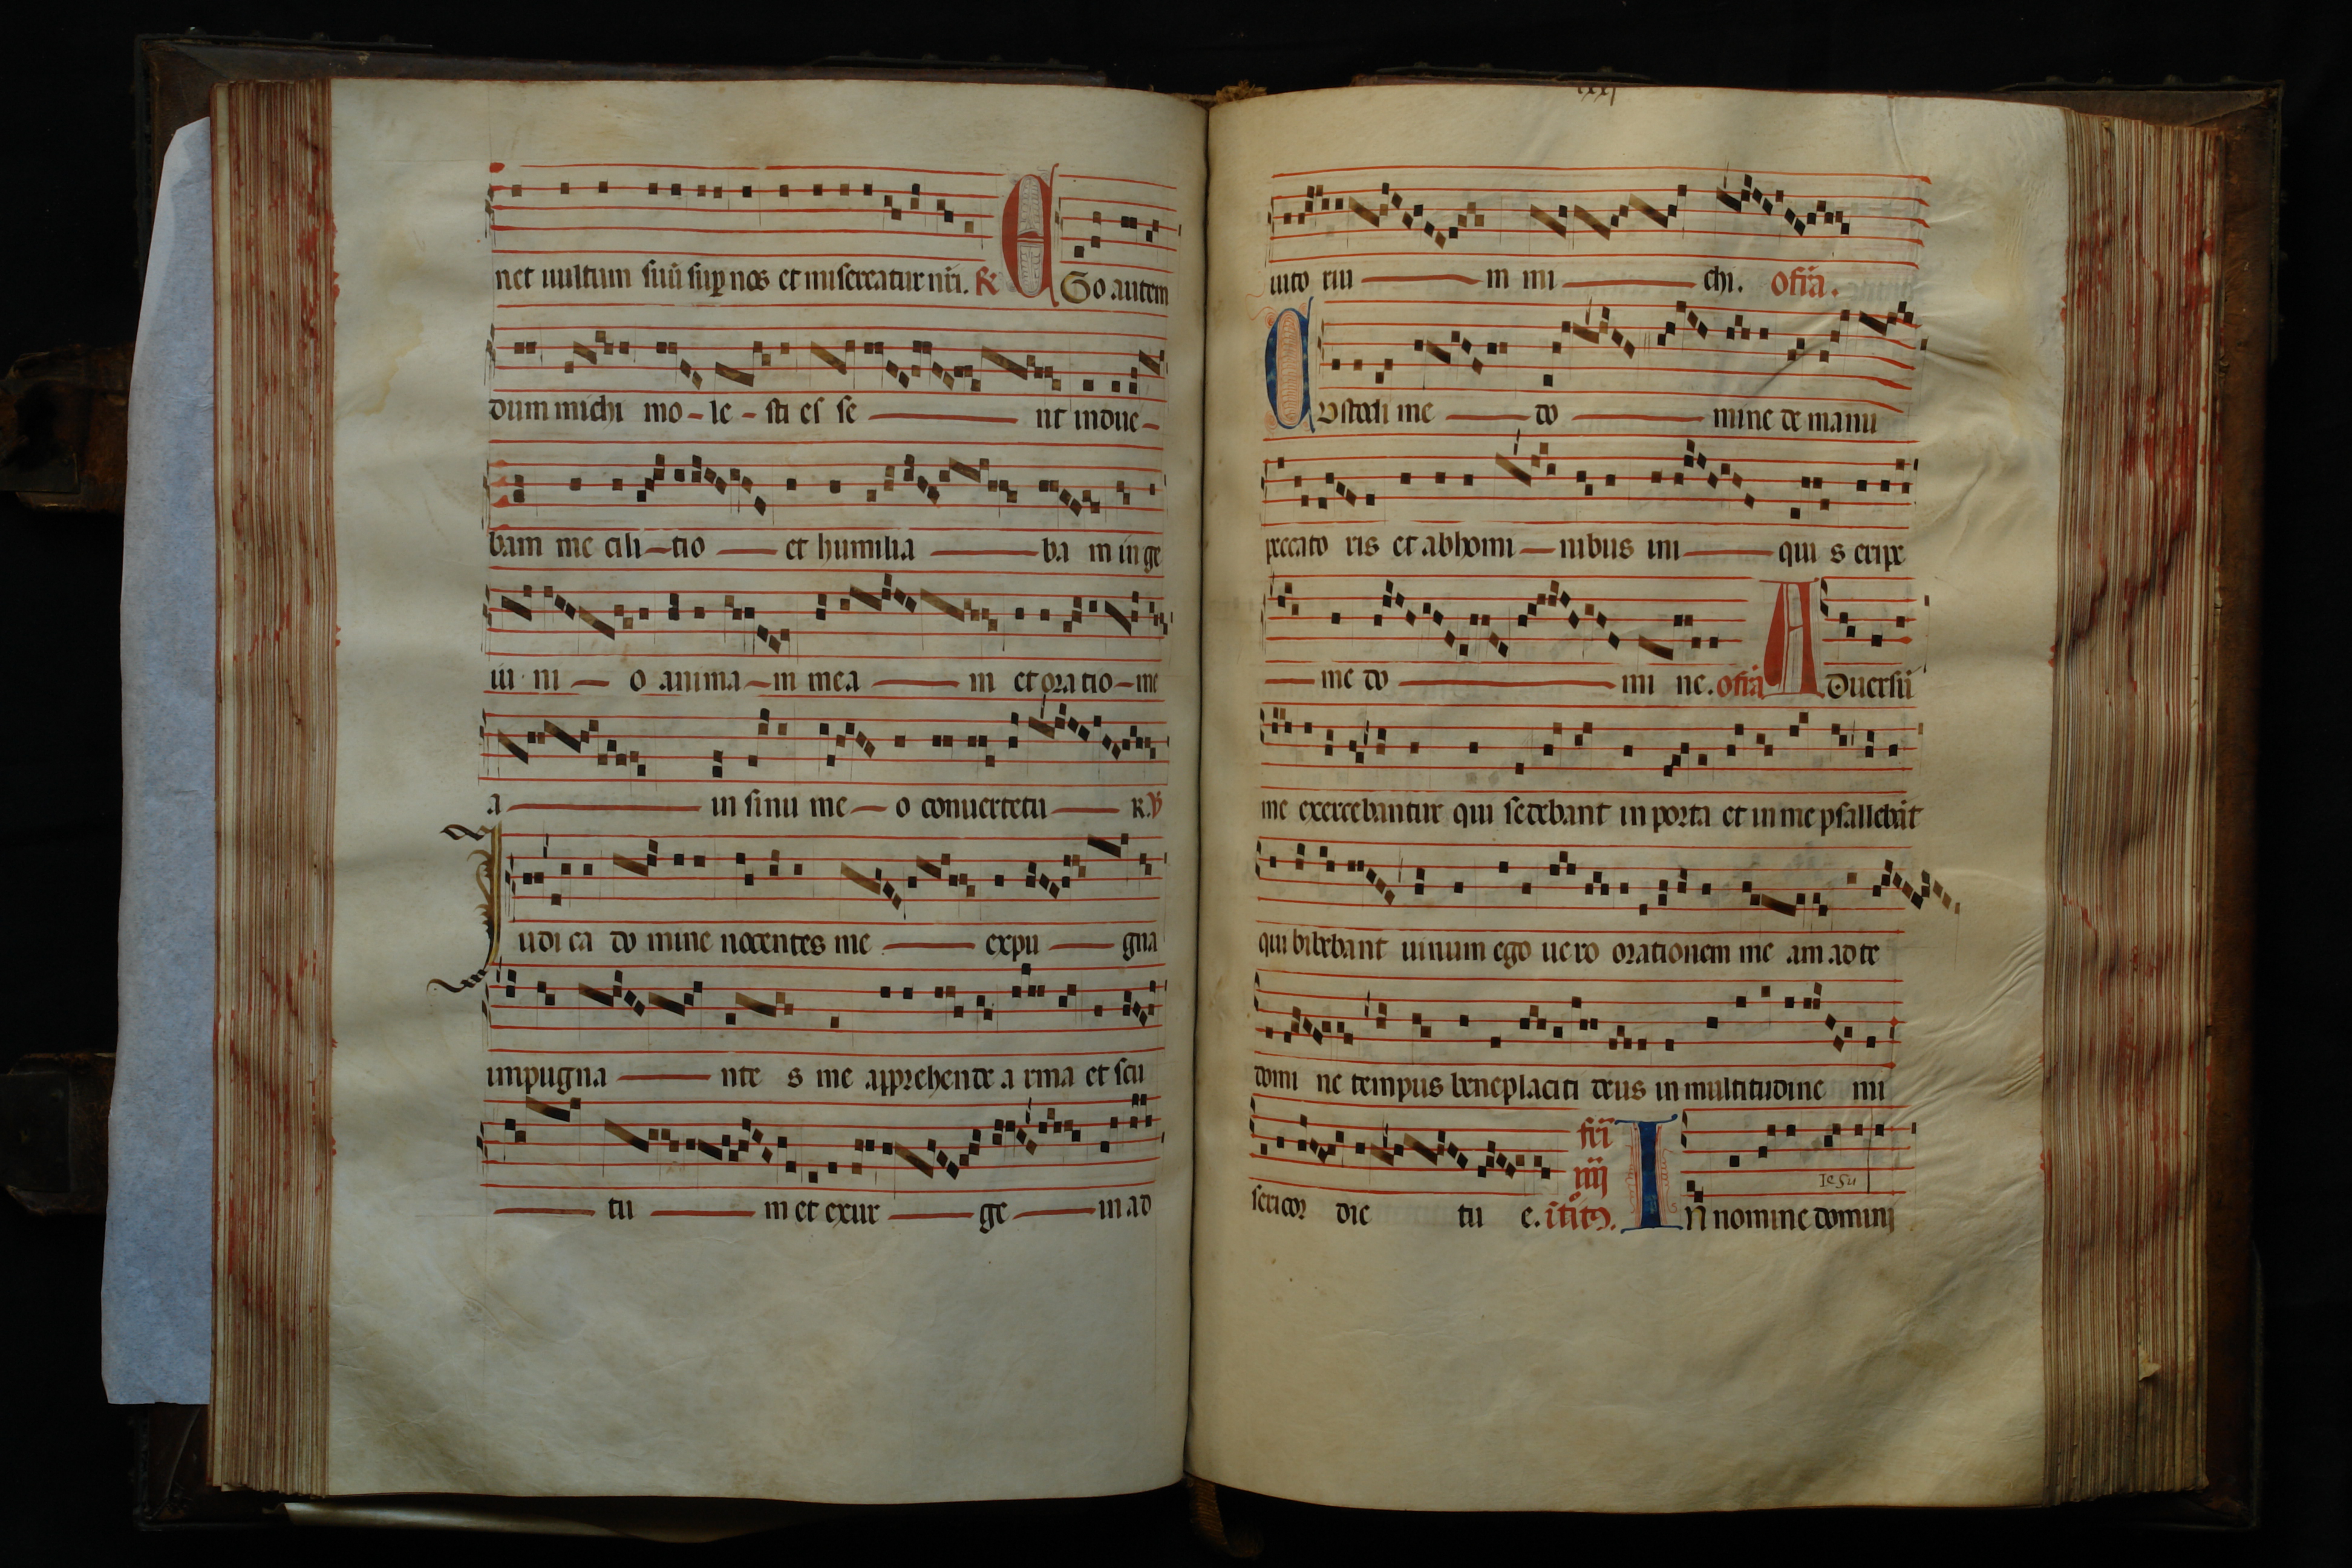 net uultum suũ sup nos et misereatur nr̃i. R Ego autem
dum michi mo - le - sti es se nt indue -
bam me cili - tio et humilia ba m in ge
iu ni o anima - m mea m et oratio - me
a in sinu me - o conuertetu r. V
iudica do mine nocentes me expu gna
impugna nte s me apprehende a rma et scu
tu m et exur ge in ad
lxxj
iuto riu m mi chi. ofr̃a.
Custodi me do mine de manu
peccato ris et ab homi - nibus ini qui s eripe
me do mi ne. ofr̃a Aduersũ
me exercebantur qui sedebant in porta et in me psallebãt
qui bibebant uinum ego ue ro orationem me am ad te
domi ne tempus beneplaciti deus in multitudine mi
fr̃i
iiij
Iesu
sericor die tu e. In nomine domini